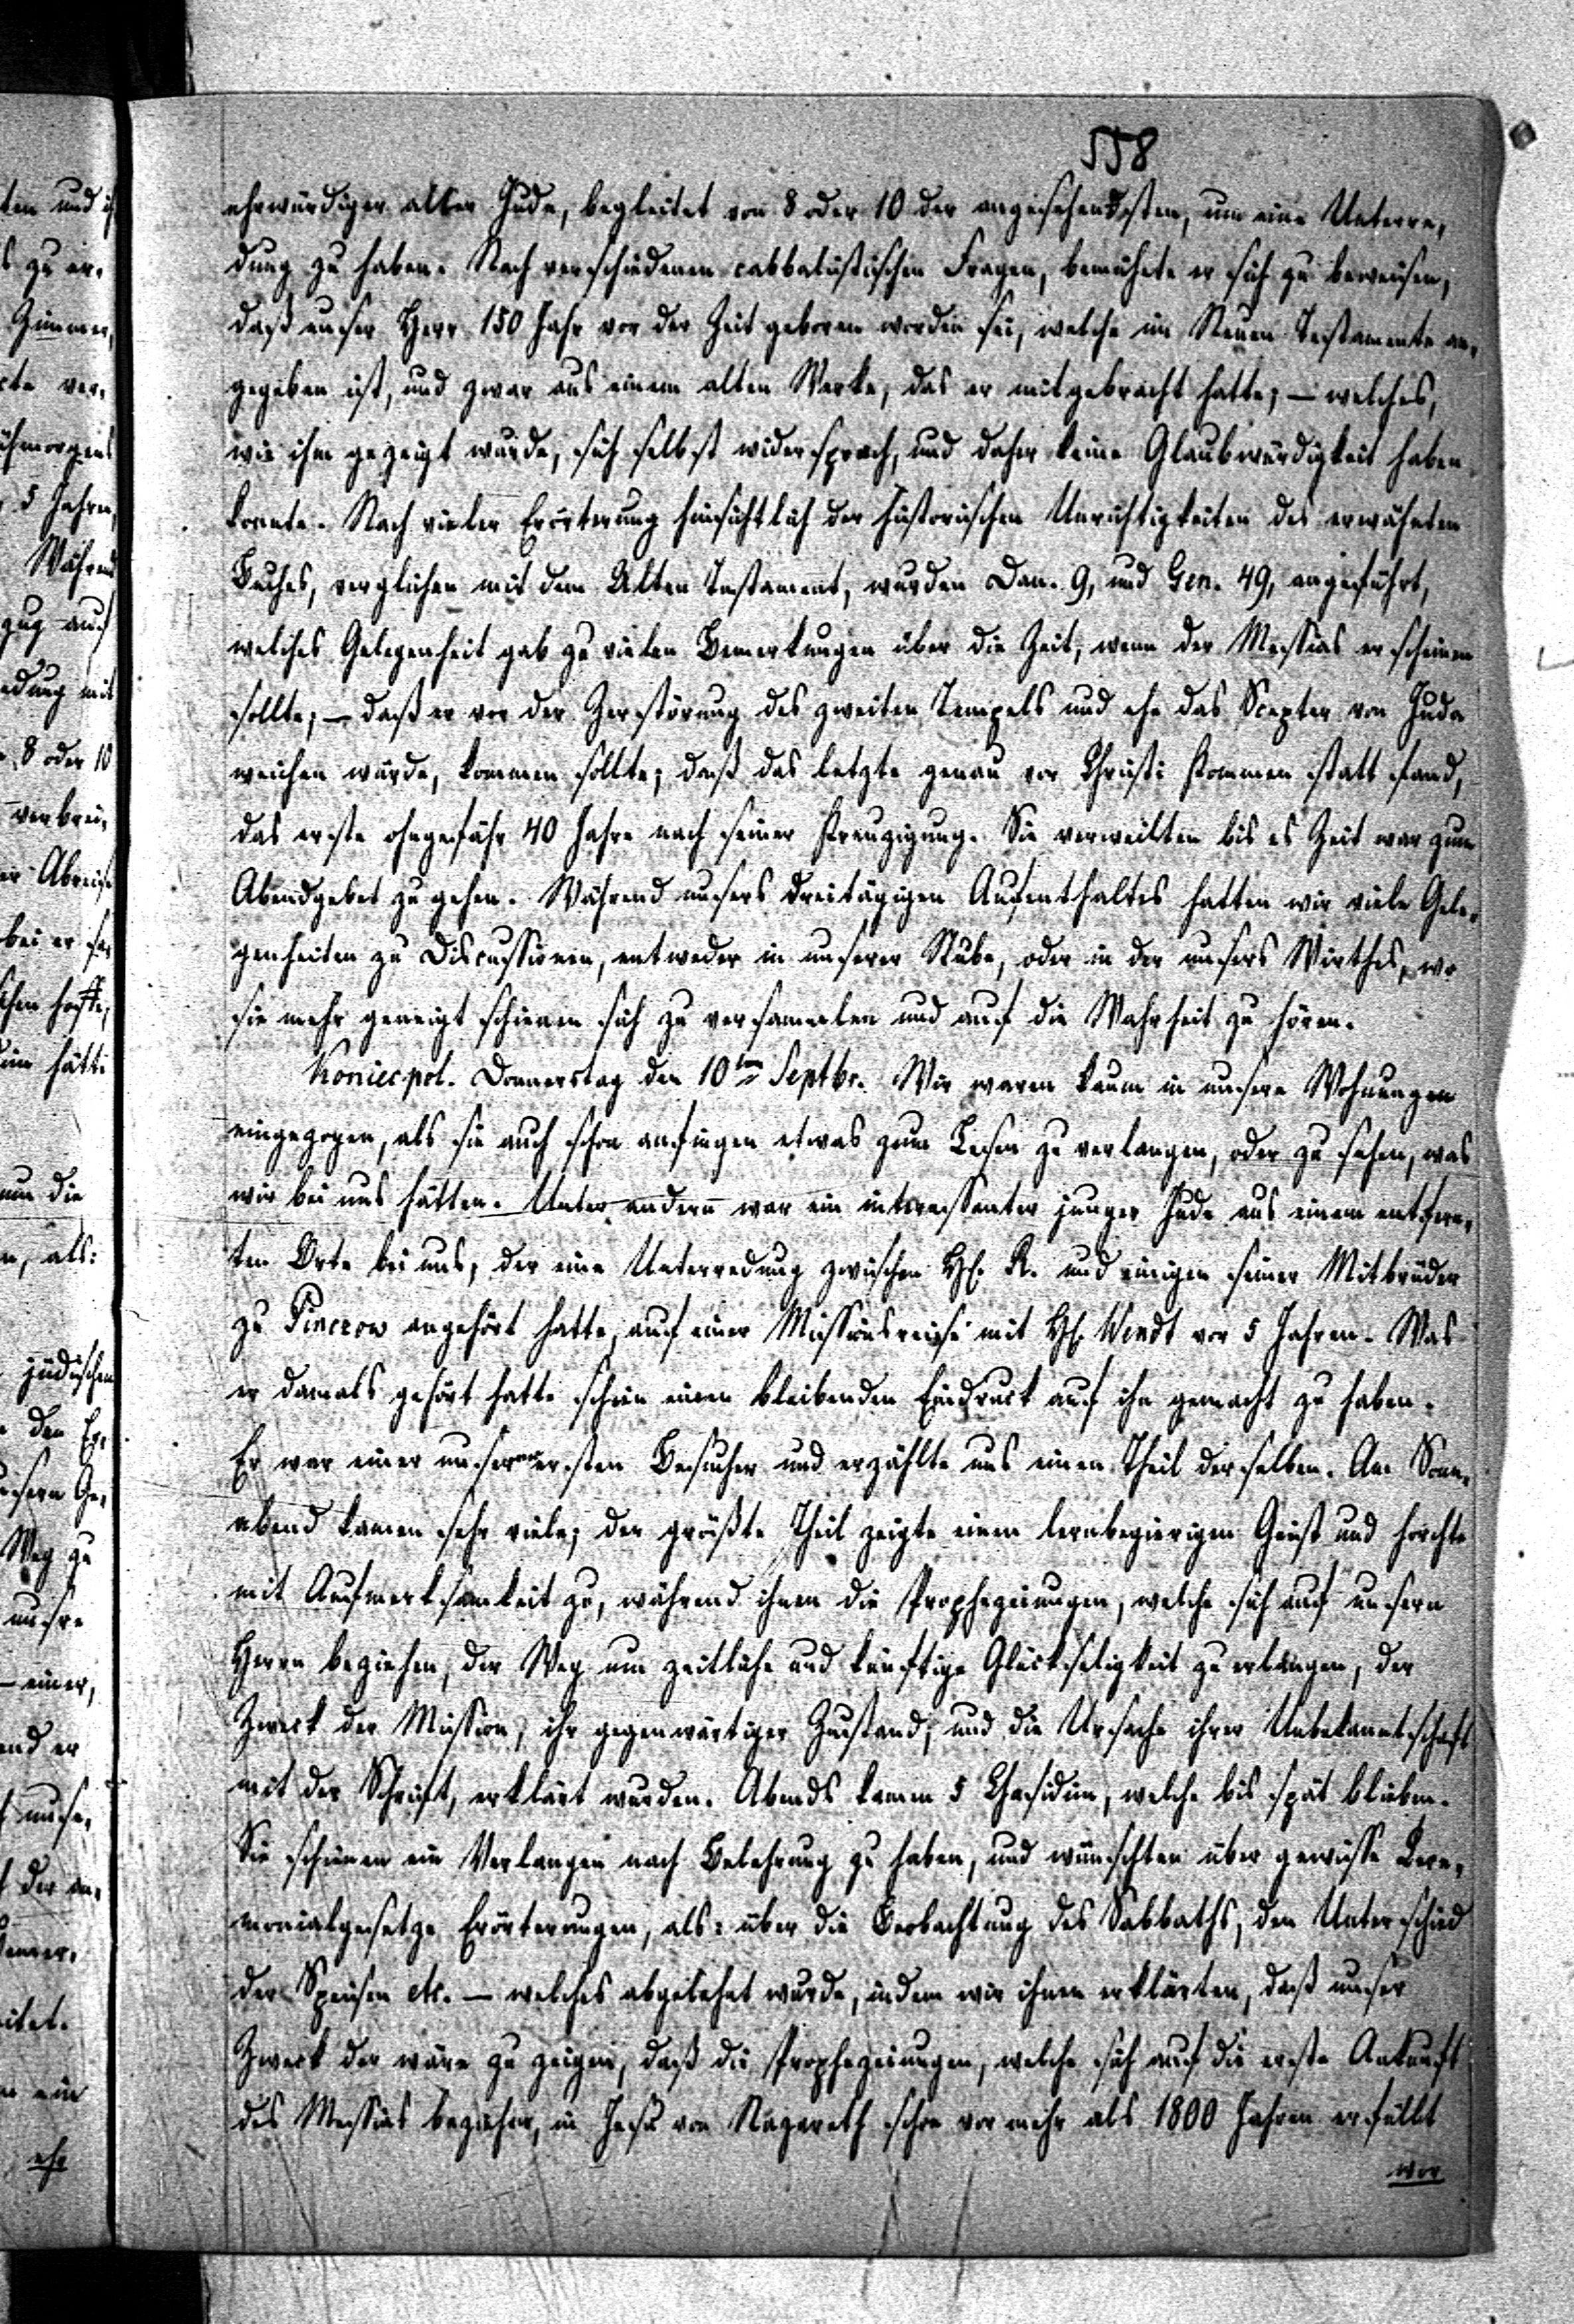 558
ehrwürdiger alter Jude, begleitet von 8 oder 10 der angesehendsten, um eine Unterre,
dung zu haben. Nach verschiedenen cabbalistischen Fragen, bemühete er sich zu beweisen,
daß unser Herr 150 Jahr vor der Zeit geboren worden sei, welche im Neuen Testamente an,
gegeben ist, und zwar aus einem alten Werke, das er mitgebracht hatte; – welches,
wie ihm gezeigt wurde, sich selbst widersprach, und daher keine Glaubwürdigkeit haben
konnte. Nach vieler Erörterung hinsichtlich der historischen Unrichtigkeiten des erwähnten
Buches, verglichen mit dem Alten Testament, wurden Dan. 9, und Gen. 49, angeführt,
welches Gelegenheit gab zu vielen Bemerkungen über die Zeit, wenn der Messias erscheinen
sollte; – daß er vor der Zerstörung des zweiten Tempels und ehe das Scepter von Juda
weichen würde, kommen sollte; daß das letzte genau vor Christi Kommen statt fand,
das erste ohngefähr 40 Jahre nach seiner Kreuzigung. Sie verweilten bis es Zeit war zum
Abendgebet zu gehen. Während unsers dreitägigen Aufenthaltes hatten wir viele Gele,
genheiten zu Discussionen, entweder in unserer Stube, oder in der unsers Wirthes, wo
sie mehr geneigt schienen sich zu versammeln und auf die Wahrheit zu hören.
Koniecpol. Donnerstag den 10ten Septbr. Wir waren kaum in unsere Wohnungen
eingezogen, als sie auch schon anfingen etwas zum Lesen zu verlangen, oder zu sehen, was
wir bei uns hätten. Unter andern war ein interessanter junger Jude aus einem entfern,
ten Orte bei uns, der eine Unterredung zwischen H. R. und einigen seiner Mitbrüder
zu Pinczow angehört hatte, auf einer Missionsreise mit H. Wendt vor 5 Jahren. Was
er damals gehört hatte schien einen bleibenden Eindruck auf ihn gemacht zu haben.
Er war einer unserer ersten Besucher und erzählte uns einen Theil derselben. Am Sonn,
abend kamen sehr viele; der größte Theil zeigte einen lernbegierigen Geist und horchte
mit Aufmerksamkeit zu, während ihnen die Prophezeiungen, welche sich auf unsern
Herrn beziehen, der Weg um zeitliche und künftige Glückseligkeit zu erlangen, der
Zweck der Mission, ihr gegenwärtiger Zustand, und die Ursache ihrer Unbekanntschaft
mit der Schrift, erklärt wurden. Abends kamen 5 Chasidim, welche bis spät blieben.
Sie schienen ein Verlangen nach Belehrung zu haben, und wünschten über gewisse Cere,
monialgesetze Erörterungen, als: über die Beobachtung des Sabbaths, den Unterschied
der Speisen etc. – welches abgelehnt wurde, indem wir ihnen erklärten, daß unser
Zweck der wäre zu zeigen, daß die Prophezeiungen, welche sich auf die erste Ankunft
des Messias beziehen, in Jesu von Nazareth schon vor mehr als 1800 Jahren erfüllt
wor